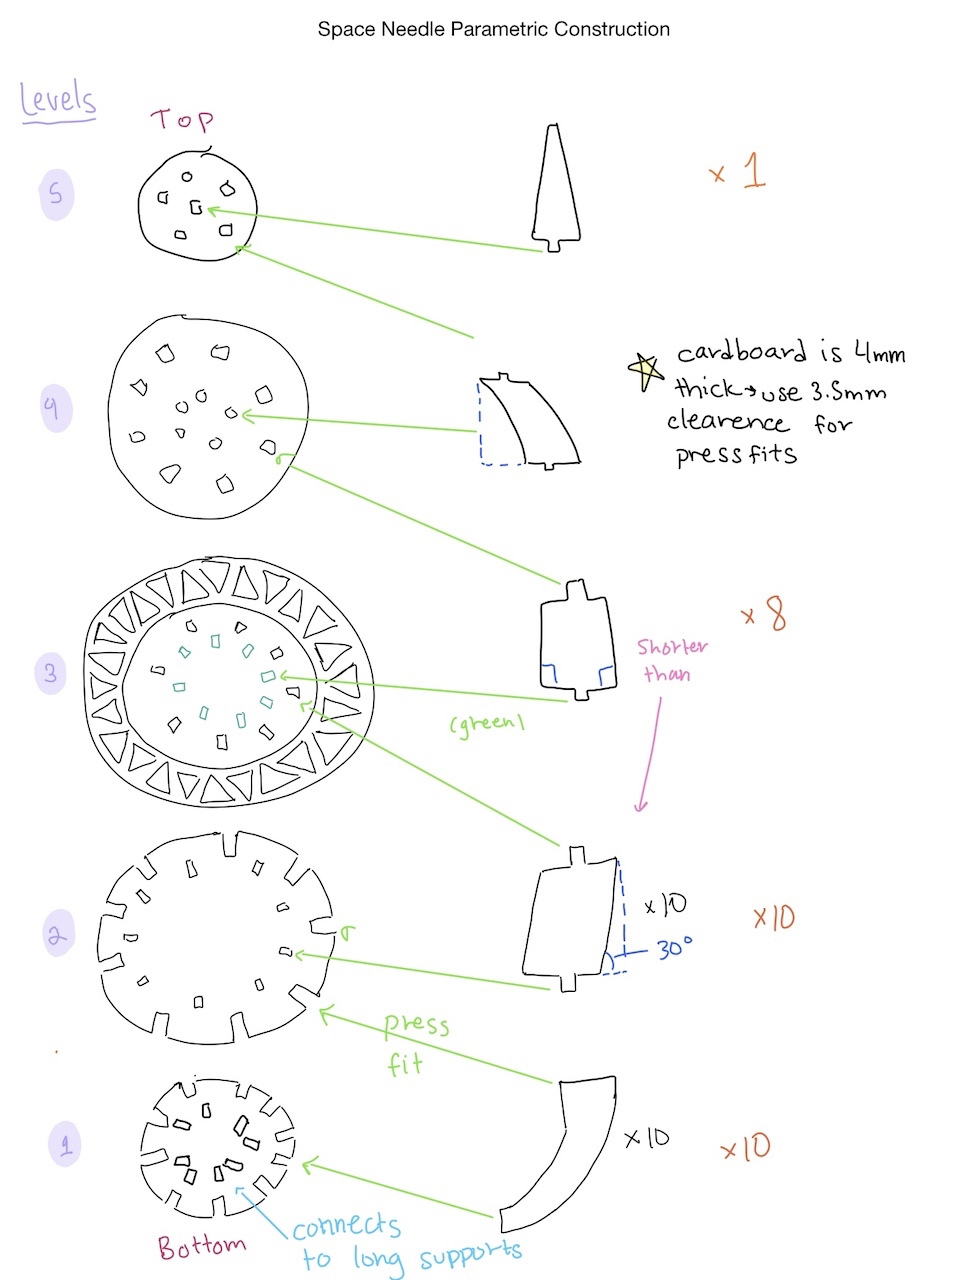 Space Needle Parametric Construction
Levels
Top
5
x 1
4
cardboard is 4mm
thick→use 3.5mm
clearence for
press fits
x 8
3
Shorter
than
(green)
2
x10
x10
30°
press
fit
1
x10
x10
connects
to long supports
Bottom